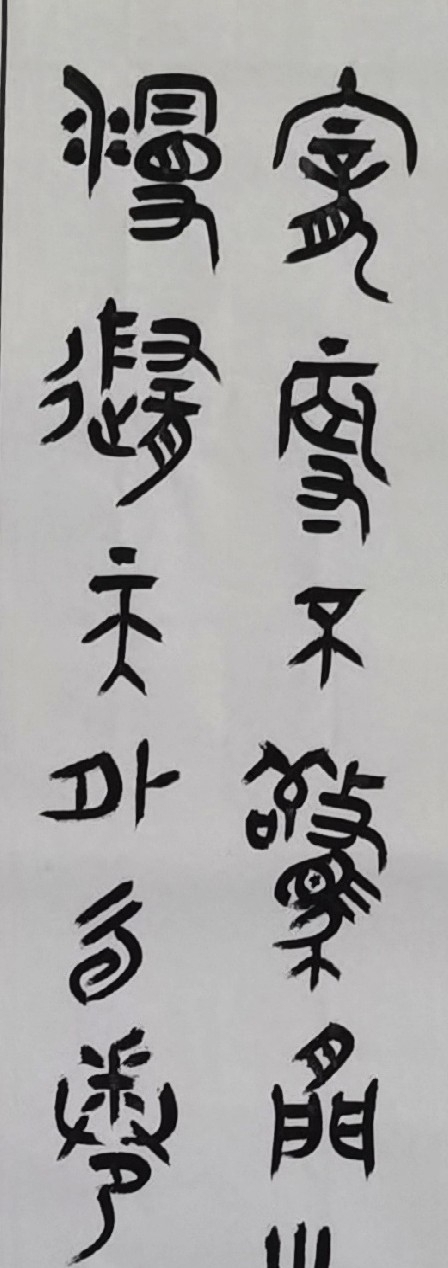 寵辱不驚閒
漫隨天外云卷